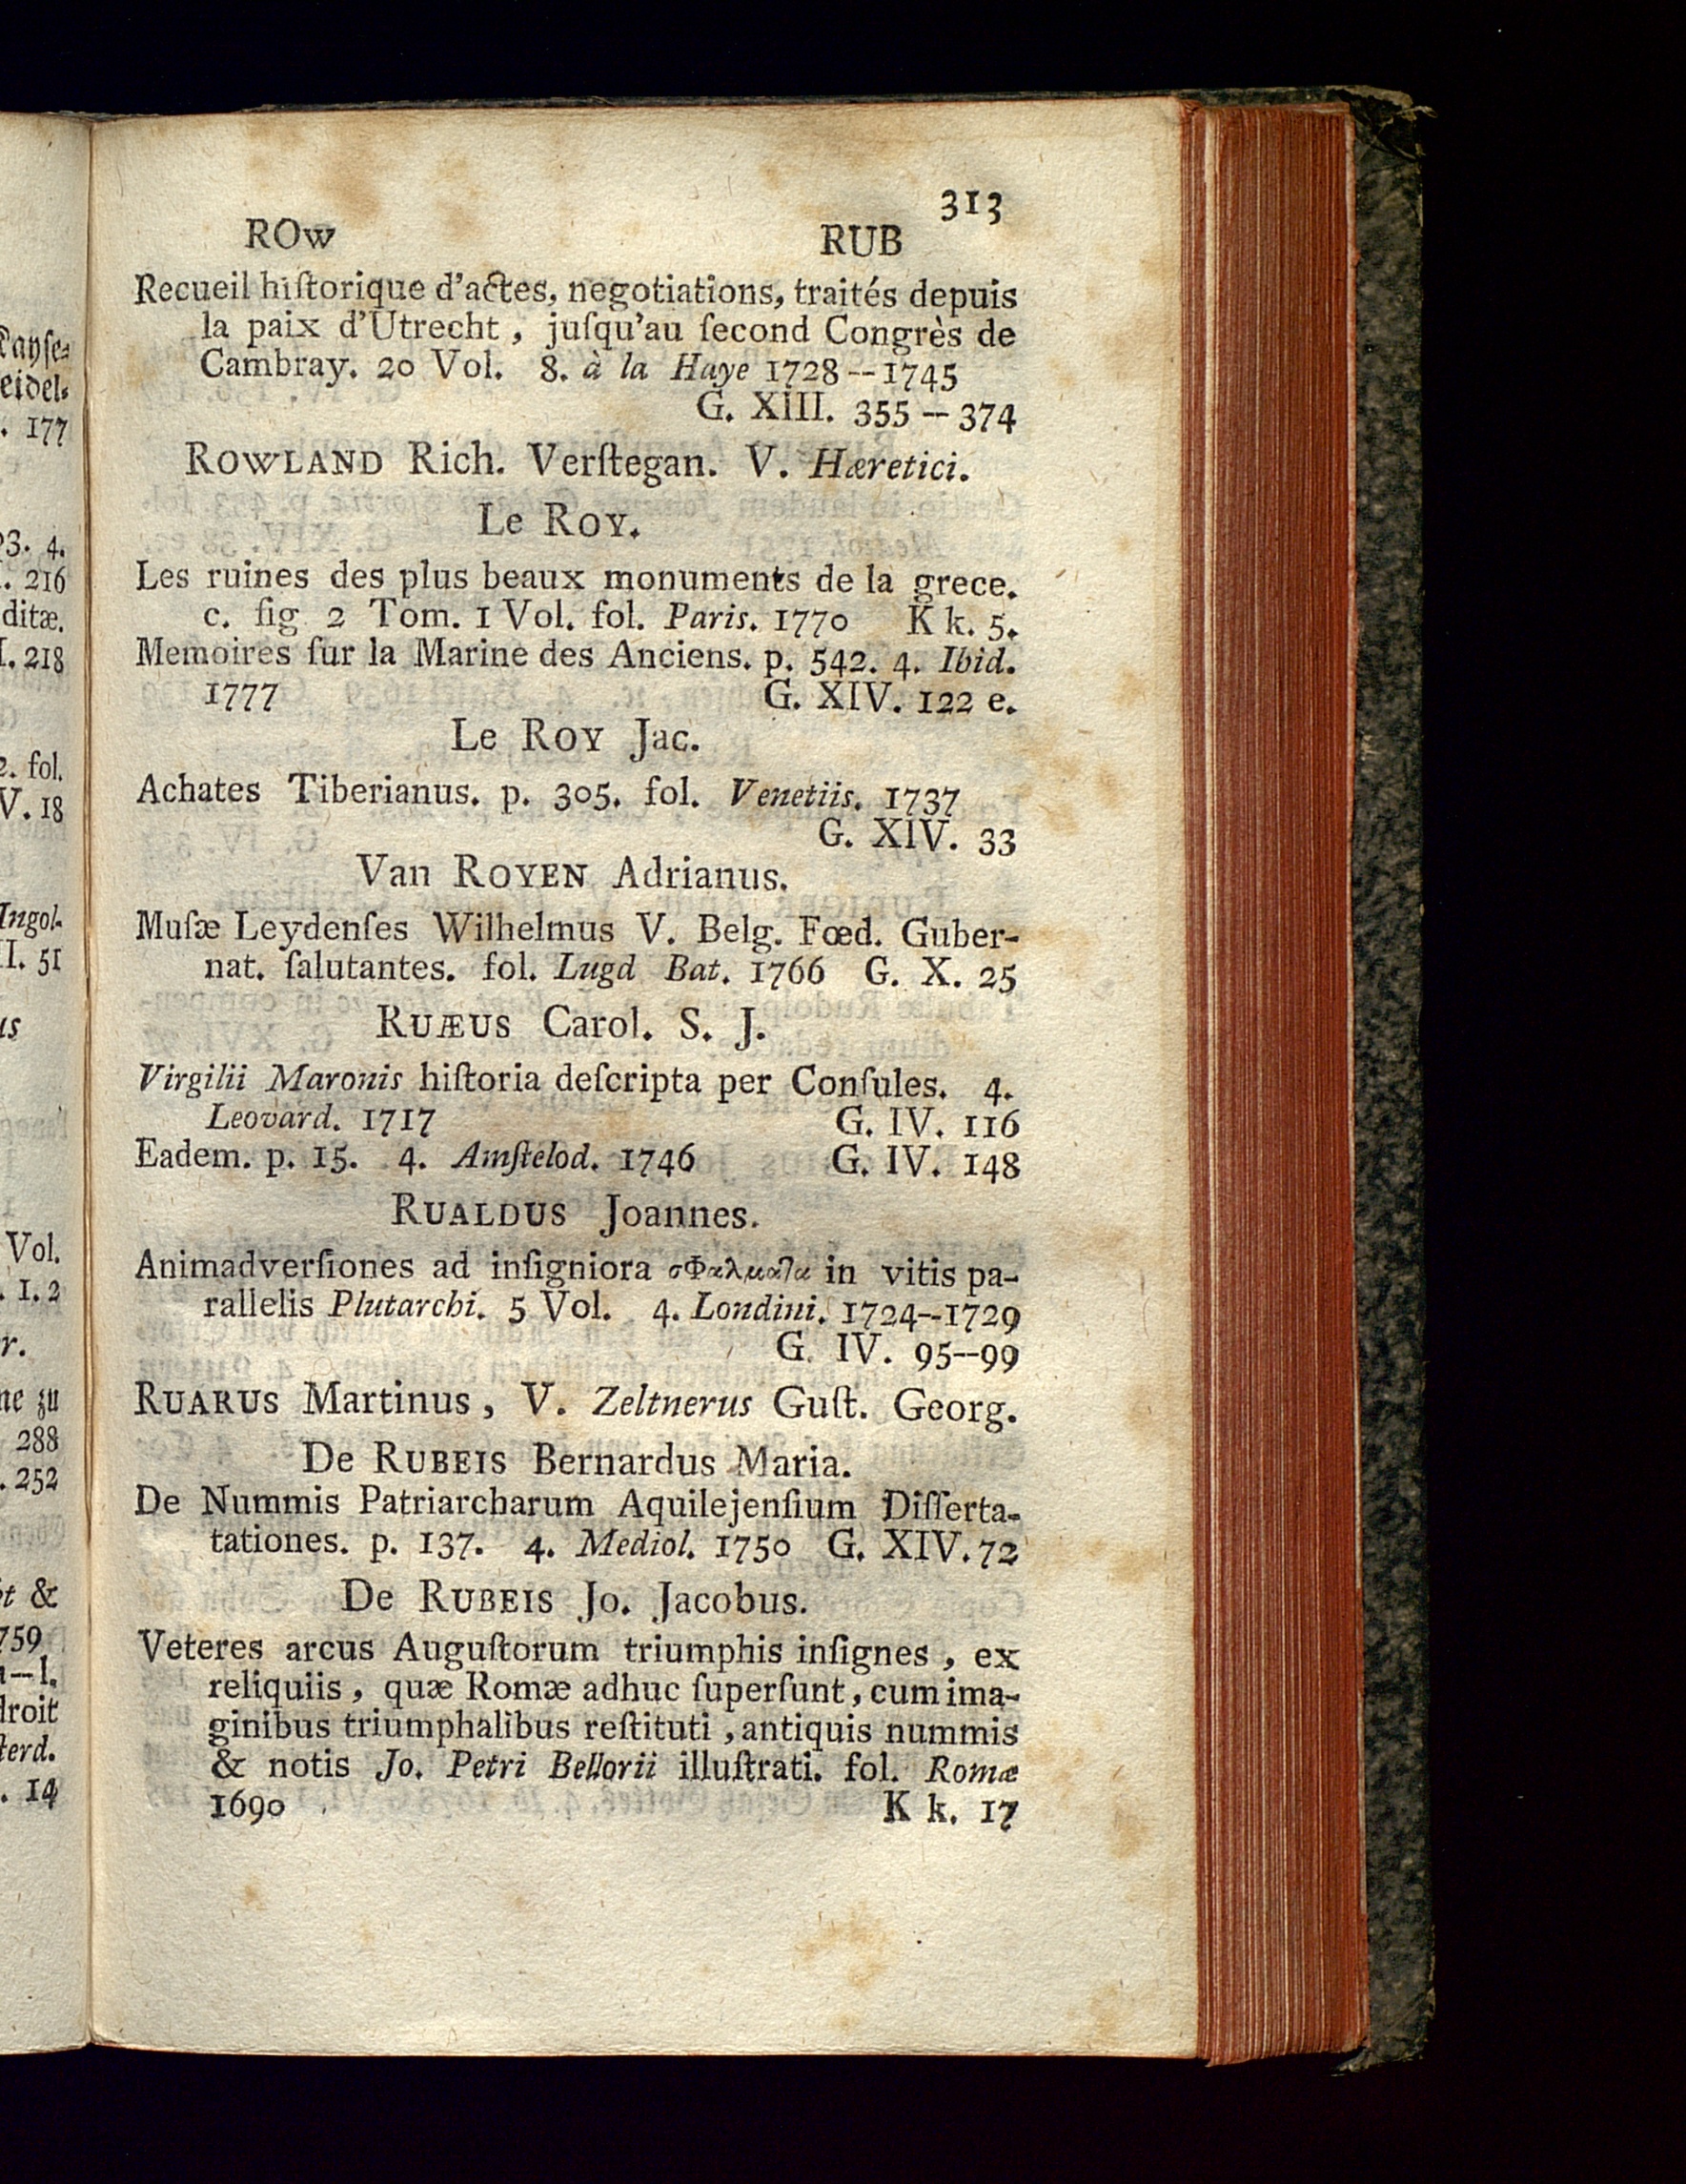 313
ROw RUB
Recueil hiſtorique d'actes, negotiations, traités depuis
la paix d'Utrecht, juſqu'au ſecond Congrès de
Cambray. 20 Vol. 8. à la Haye 1728--1745
G. XIII. 355 – 374
ROWLAND Rich. Verſtegan. V. Hæretici.
Le ROY.
Les ruines des plus beaux monuments de la grece.
c. fig 2 Tom. 1 Vol. fol. Paris. 1770 K k. 5.
Memoires ſur la Marine des Anciens. p. 542. 4. Ibid.
1777 G. XIV. 122 e.
Le ROY Jac.
Achates Tiberianus. p. 305. fol. Venetiis. 1737
G. XIV. 33
Van ROYEN Adrianus.
Muſæ Leydenſes Wilhelmus V. Belg. Fœd. Guber-
nat. ſalutantes. fol. Lugd Bat. 1766 G. X. 25
RUÆUS Carol. S. J.
Virgilii Maronis hiſtoria deſcripta per Conſules. 4.
Leovard. 1717 G. IV. 116
Eadem. p. 15. 4. Amſtelod. 1746 G. IV. 148
RUALDUS Joannes.
Animadverſiones ad inſigniora σΦαλμαῖα in vitis pa-
rallelis Plutarchi. 5 Vol. 4. Londini. 1724--1729
G. IV. 95--99
RUARUS Martinus, V. Zeltnerus Guſt. Georg.
De RUBEIS Bernardus Maria.
De Nummis Patriarcharum Aquilejenſium Diſſerta-
tationes. p. 137. 4. Mediol. 1750 G. XIV. 72
De RUBEIS Jo. Jacobus.
Veteres arcus Auguſtorum triumphis inſignes, ex
reliquiis, quæ Romæ adhuc ſuperſunt, cum ima-
ginibus triumphalibus reſtituti, antiquis nummis
& notis Jo. Petri Bellorii illuſtrati. fol. Romæ
1690 K k. 17